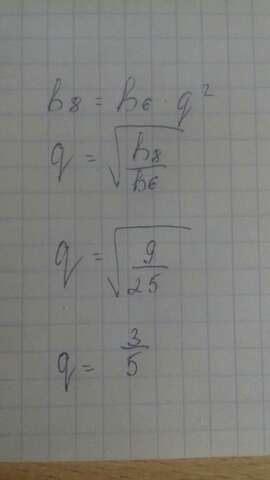 b₈ = b₆ · q²
q = √(b₈/b₆)
q = √(9/25)
q = 3/5